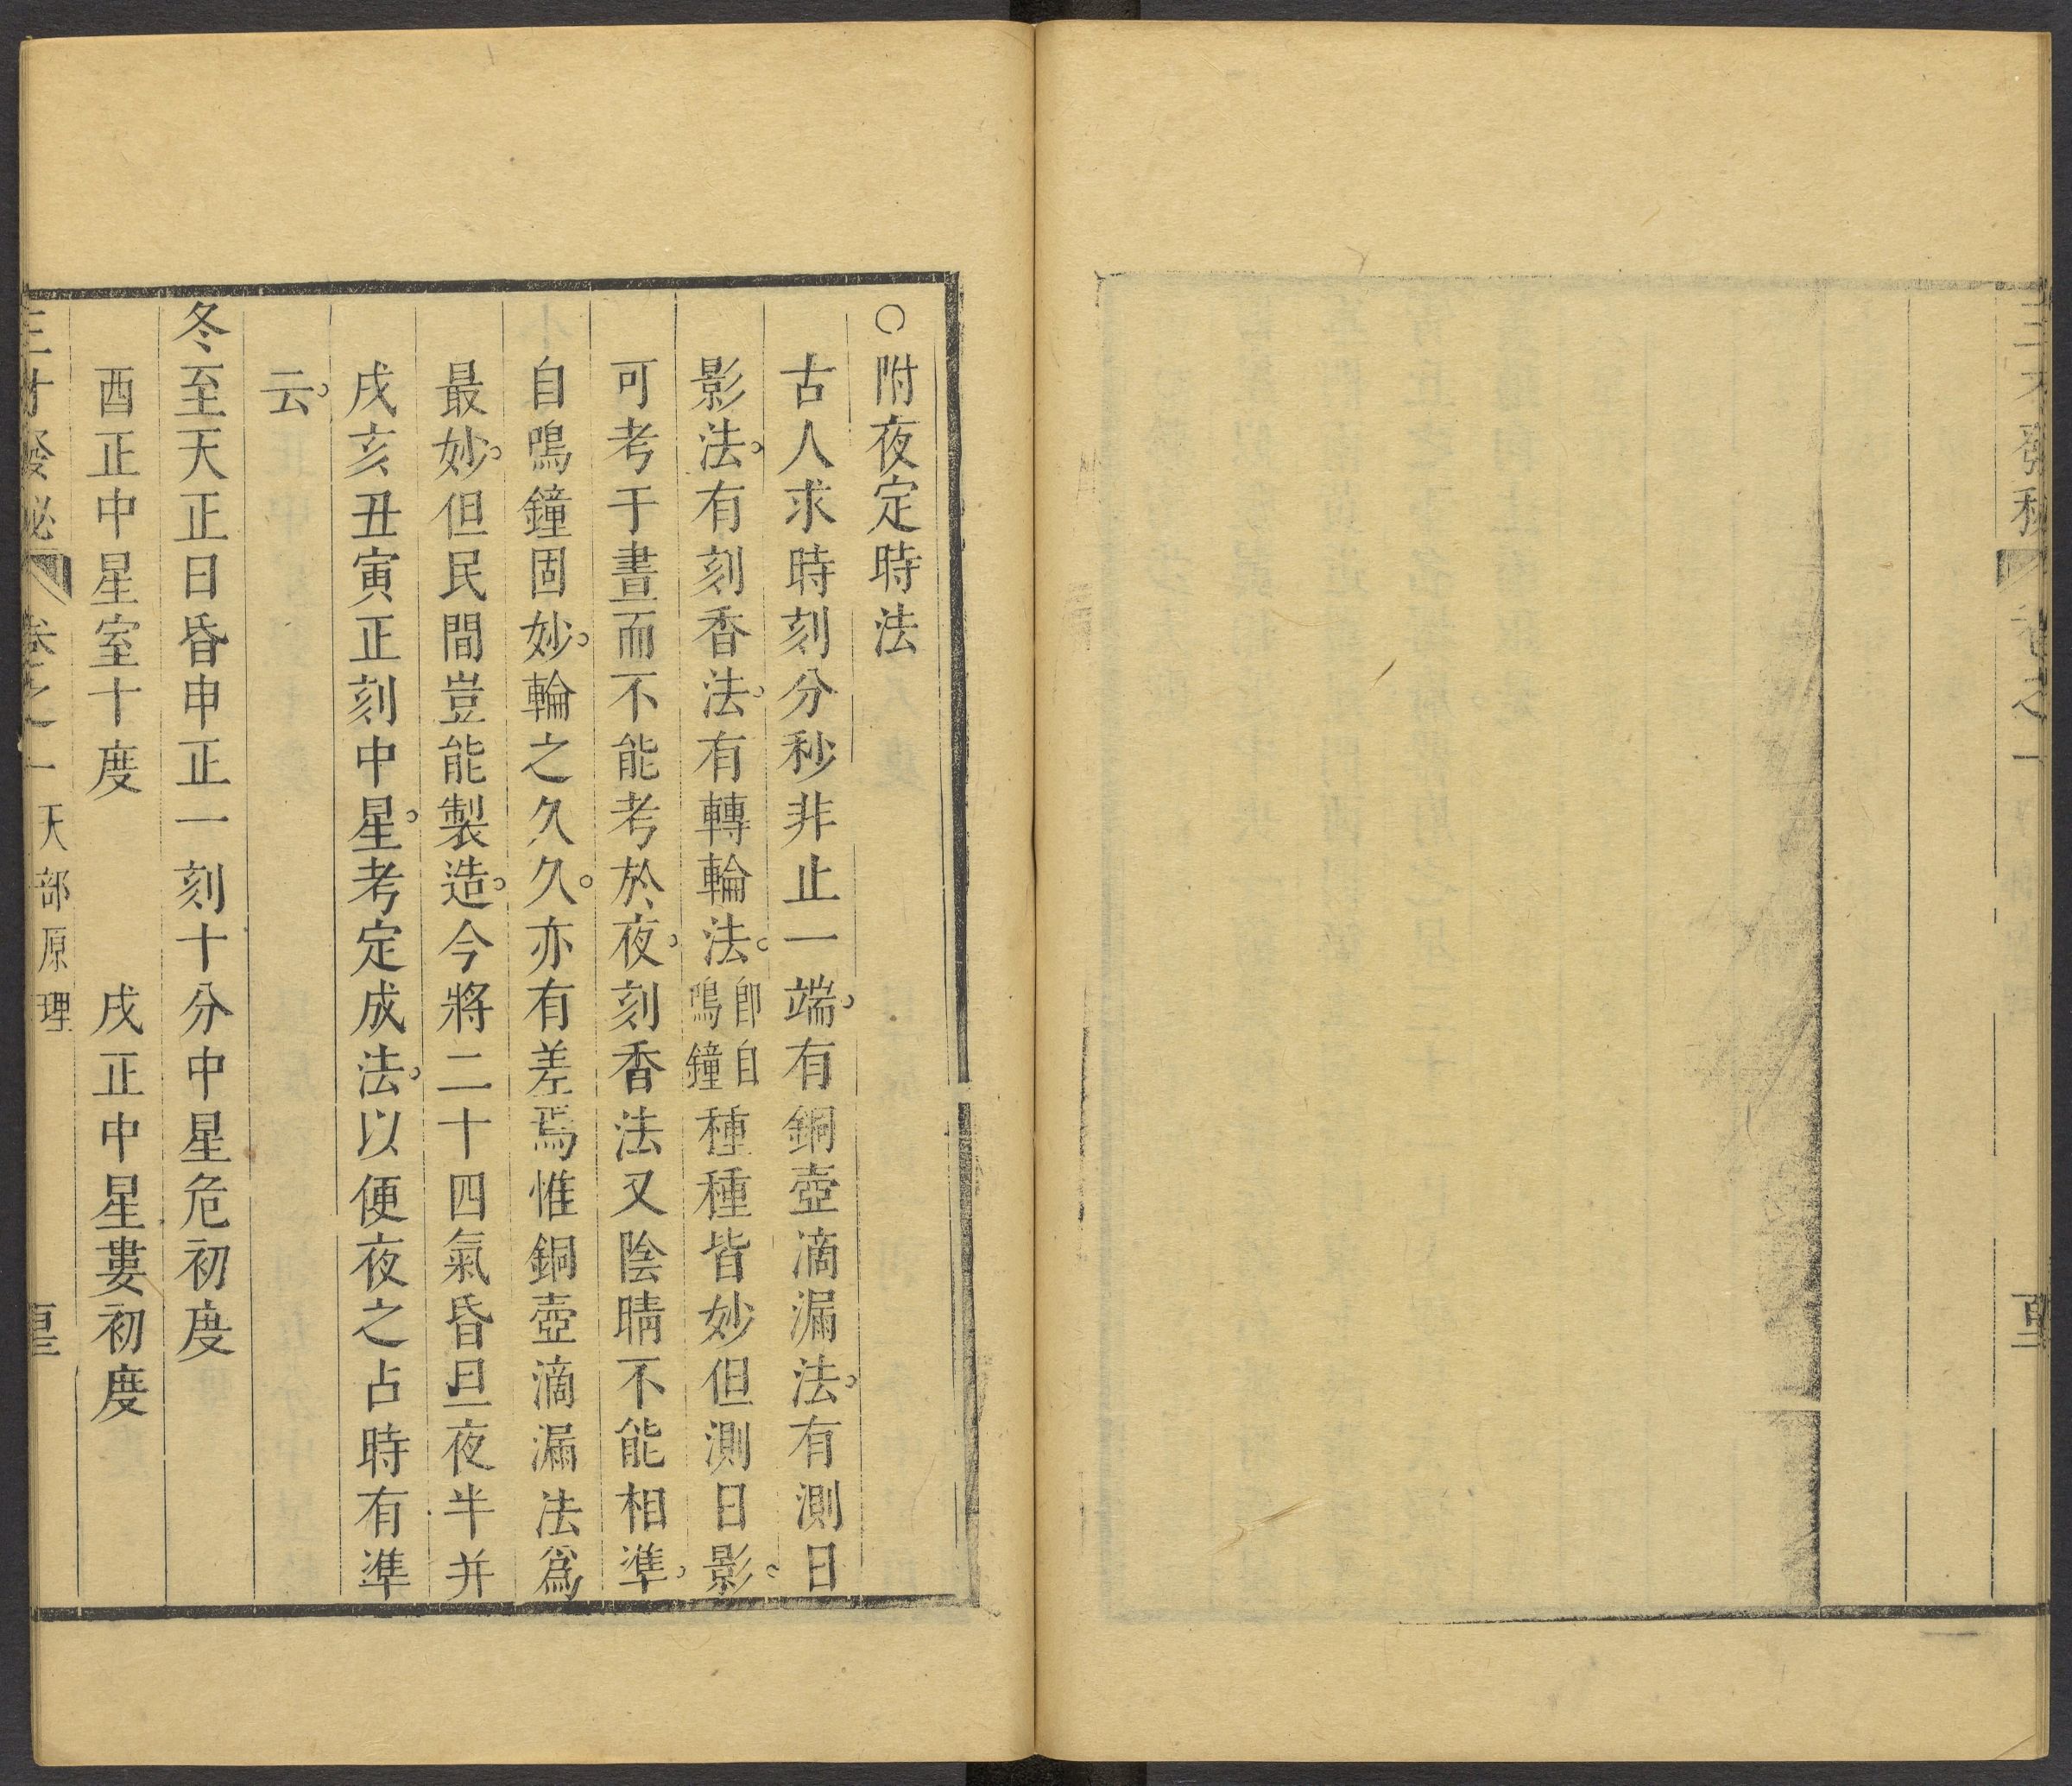 ○附夜定時法
古人求時刻分秒非止一端。有銅壺滴漏法。有測日
影法。有刻香法。有轉輪法。卽自鳴鐘種種皆妙但測日影。
可考于晝而不能考於夜。刻香法又陰晴不能相準。
自鳴鐘固妙。輪之久久。亦有差焉惟銅壺滴漏法爲
最妙。但民間豈能製造。今將二十四氣昏旦夜半并
戌亥丑寅正刻中星。考定成法。以便夜之占時有準
云。
冬至天正日昏申正一刻十分中星危初度
酉正中星室十度　戌正中星婁初度
三才發秘　卷之一天部原理
三才發秘　卷之一